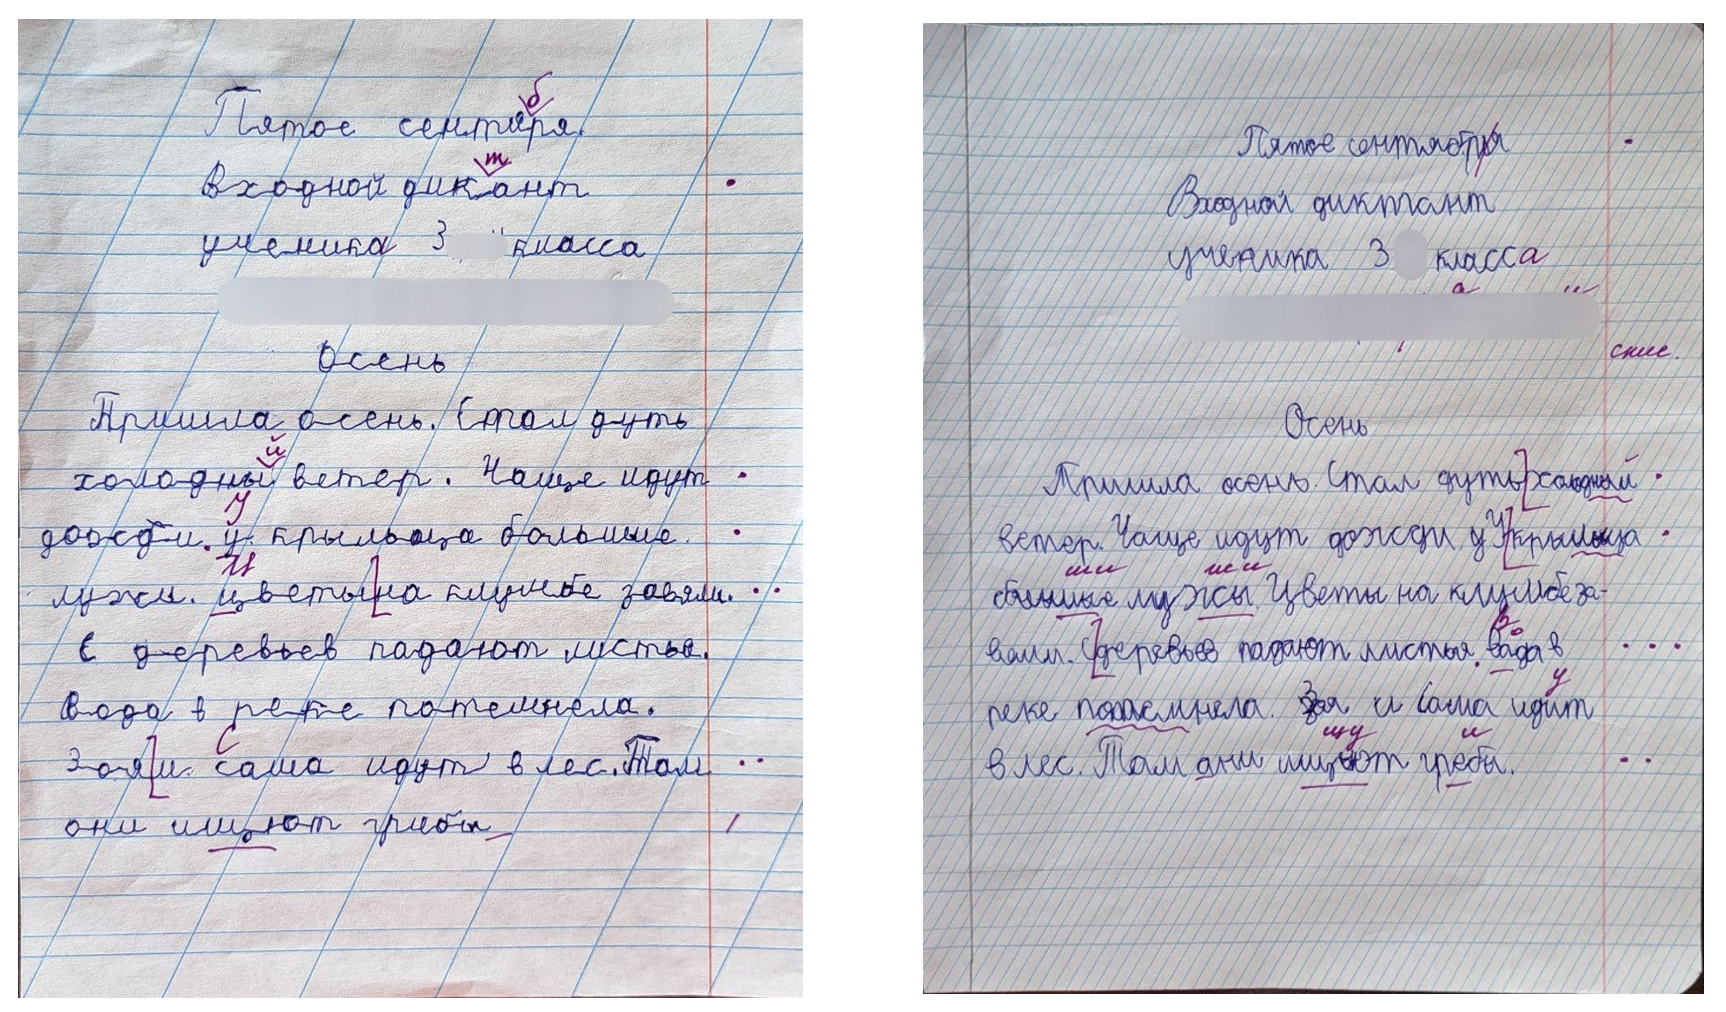 Пятое сентяря.
Входной дикант
ученика 3 класса
Осень
Пришла осень. Стал дуть
холодны ветер. Чаще идут
дожди. у крыльца большие.
лужи. цветы на клумбе завяли.
С деревьев падают листья.
Вода в реке потемнела.
Зоя и саша идут в лес. Там
они ищют грибы
Пятое сентября
Входной диктант
ученика 3 класса
спис.
Осень
Пришла осень. Стал дуть холодный
ветер. Чаще идут дожди у крыльца
большие лужы. Цветы на клумбе за-
вяли. С деревьев падают листья. вада в
реке Зоя и Саша идит
в лес. Там они гребы.